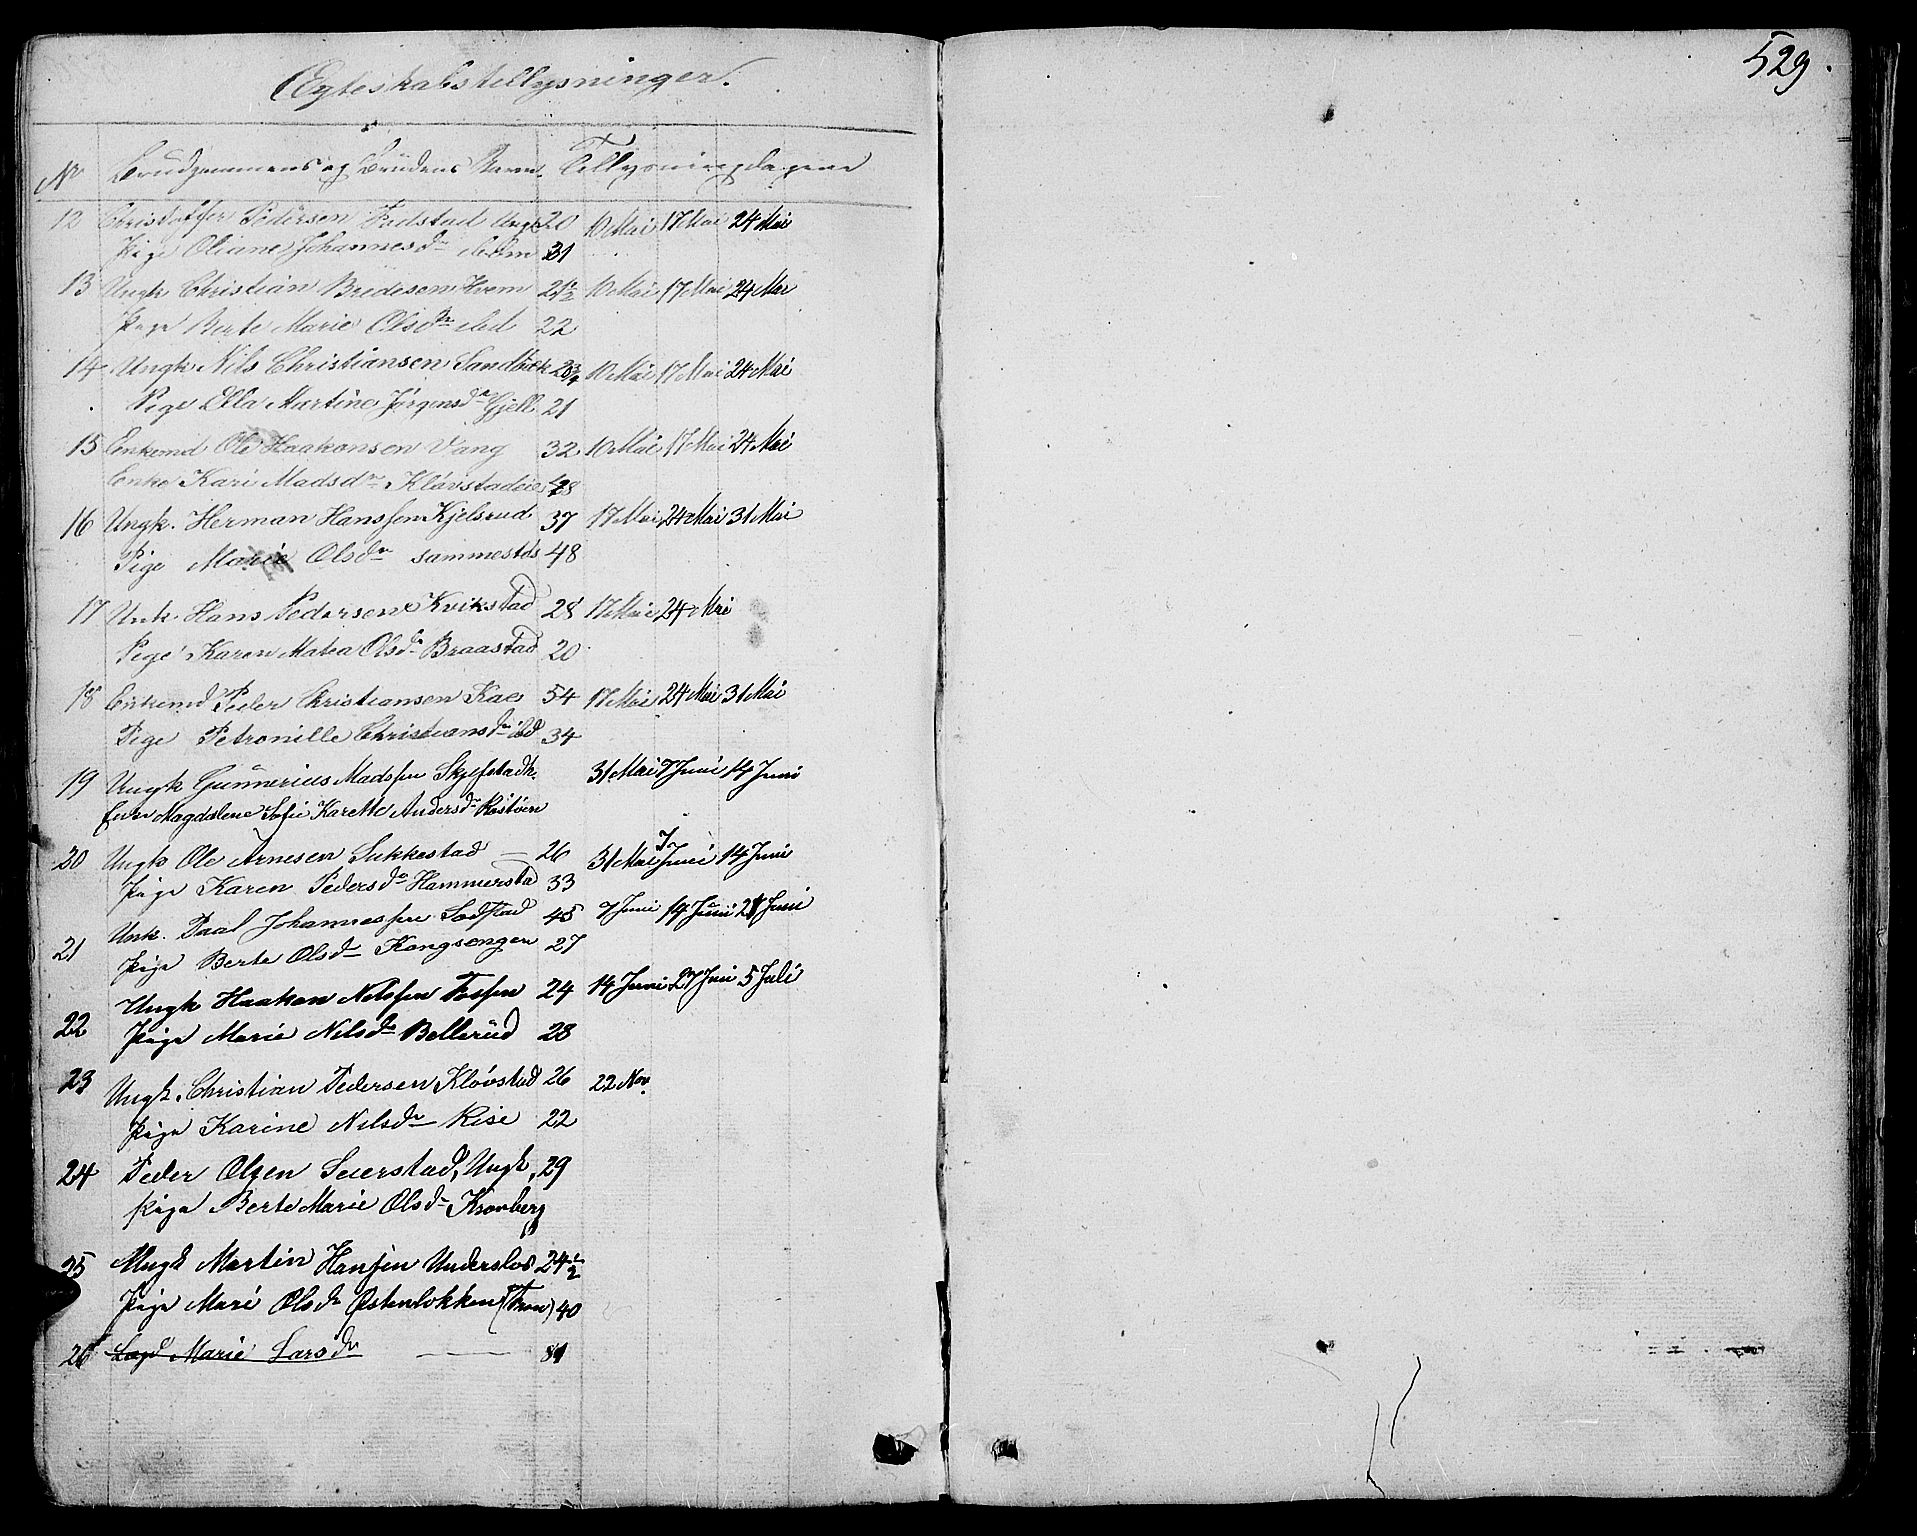 529.
Ægteskabstillysninger.
No Brudgummens og Brudens Navn. Tillysningsdagene
12 Christoffer Pedersen Ungk 20 10 Mai 17 Mai 24 Mai
Pige Oliane Johannesdr 31
13 Ungk Christian Bredesen Hvem 21½ 10 Mai 17 Mai 24 Mai
Pige Berte Marie Olsdr ibid 22
14 Ungk Nils Christiansen Sandbæk 23¾ 10 Mai 17 Mai 24 Mai
Pige Martine Jørgensdr Gjell 21
15 Enkemd Ole Haakonsen Vang 32 10 Mai 17 Mai 24 Mai
Enke Kari Madsdr Kløvstadeie 48
16 Ungk. Herman Hanssen Kjelsrud 37 17 Mai 24 Mai 31 Mai
Pige Marie Olsdr sammestds 48
17 Unk. Hans Pedersen Kvikstad 28 17 Mai 24 Mai
Pige Karen Matea Olsdr Braastad 20
18 Enkemd Peder Christiansen Kae 54 17 Mai 24 Mai 31 Mai
Pige Petronille Christiansdr ibd 34
19 Ungk Gunnerius Madssen Skjefstadh. 31 Mai 7 Juni 14 Juni
Magdalene Sofie Karette Andersdr
20 Ungk Ole Arnesen Sukkestad — 26 31 Mai 7 Juni 14 Juni
Pige Karen Pedersdr Hammerstad 33
21 Unk. Paal Johannessen 45 7 Juni 14 Juni 21 Juni
Pige Berte Olsdr Kongsengen 27
22 Ungk Haakon Nilssen Fossen 24 14 Juni 27 Juni 5 Juli
Pige Marie Nilsdr Bellerud 28
23 Ungk. Christian Pedersen Kløvstad 26 22 Nov.
Pige Karine Nilsdr Rise 22
24 Peder Olsen Seierstad, Ungk. 29
Pige Berte Marie Olsdr Kronberg
25 Ungk Martin Hansen Underslos 24½
Pige Mari Olsdr Østenløkken 40
26 Marie Larsdr — 81